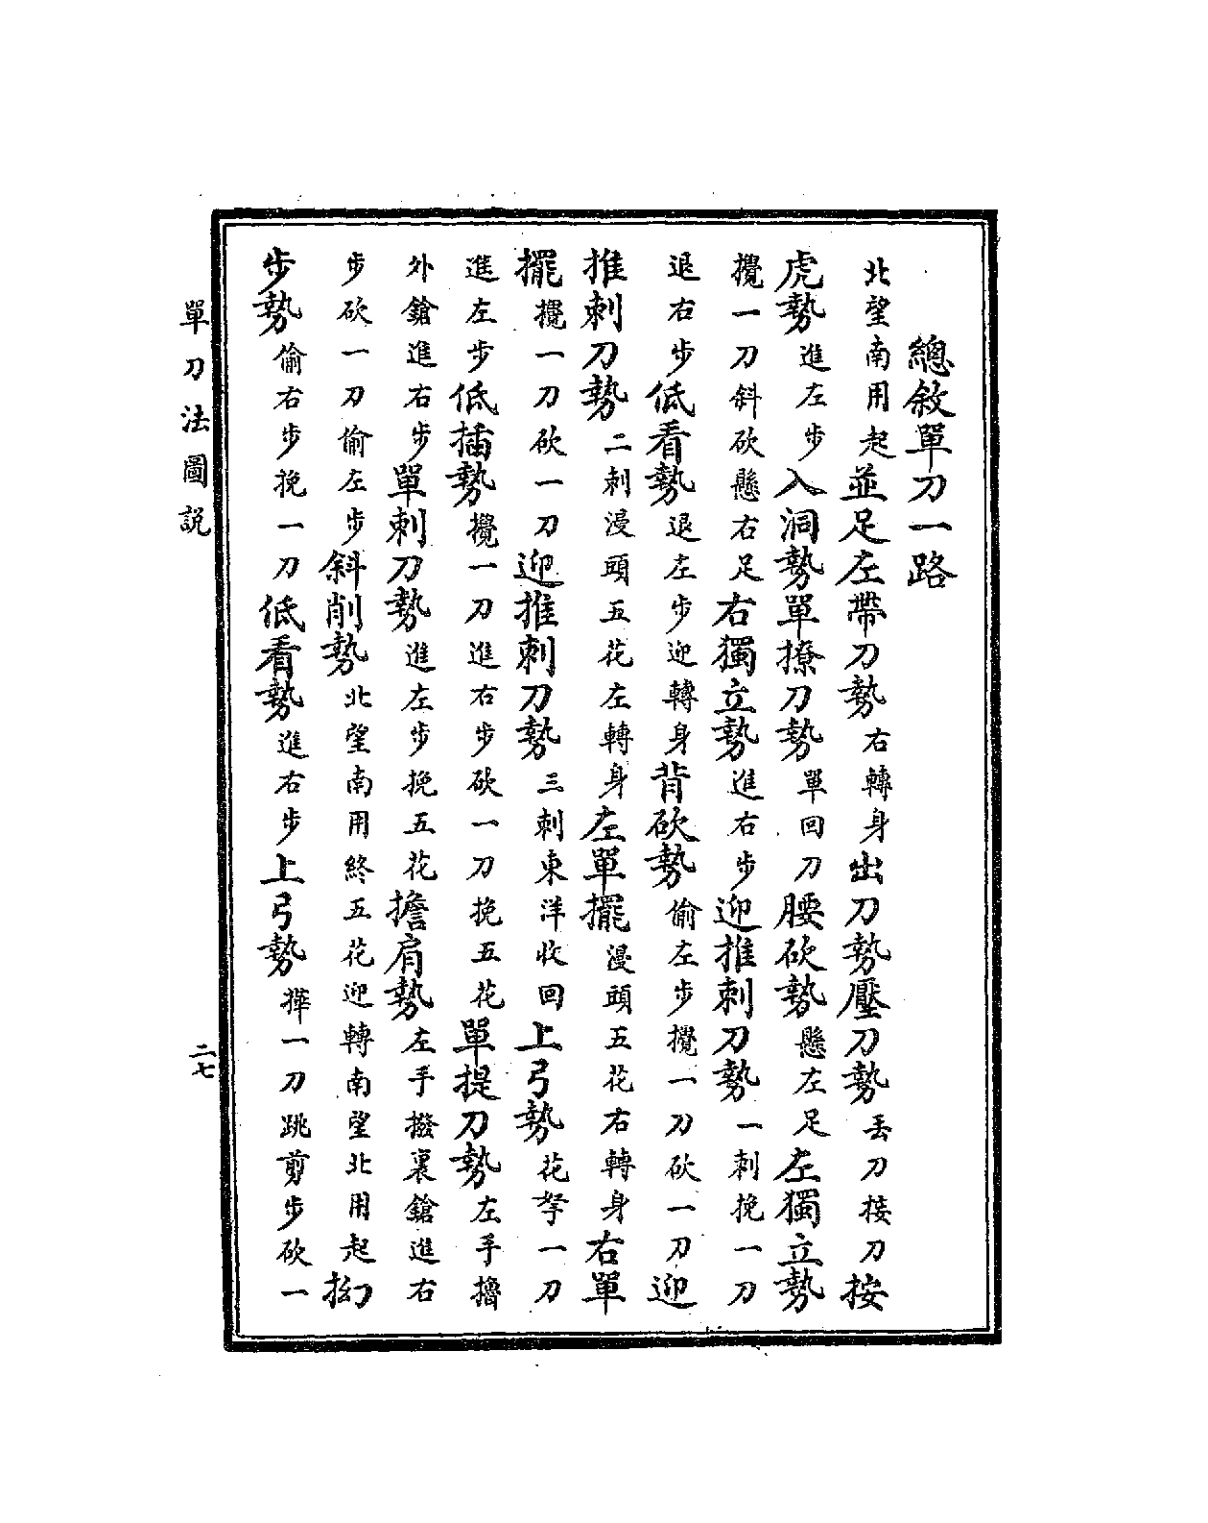 總敘單刀一路
北望南用起並足左帶刀勢右轉身出刀勢壓刀勢丟刀接刀按
虎勢進左步入洞勢單撩刀勢單回刀腰砍勢懸左足左獨立勢
攪一刀斜砍懸右足右獨立勢進右步迎推刺刀勢一刺挽一刀
退右步低看勢退左步迎轉身背砍勢偷左步攪一刀砍一刀迎
推刺刀勢二刺漫頭五花左轉身左單擺漫頭五花右轉身右單
擺攪一刀砍一刀迎推刺刀勢三刺東洋收回上弓勢花拏一刀
進左步低插勢攪一刀進右步砍一刀挽五花單提刀勢左手擼
外鎗進右步單刺刀勢進左步挽五花擔肩勢左手撥裏鎗進右
步砍一刀偷左步斜削勢北望南用終五花迎轉南望北用起拗
步勢偷右步挽一刀低看勢進右步上弓勢撵一刀跳剪步砍一
單刀法圖説
二七